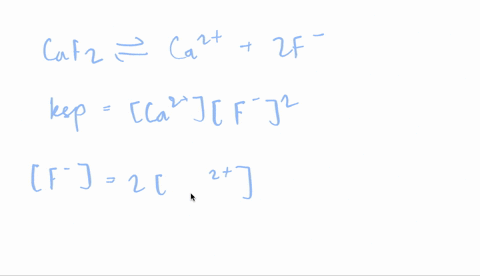 CaF2 ⇌ Ca²⁺ + 2F⁻
ksp = [Ca²⁺][F⁻]²
[F⁻] = 2[ ²⁺]